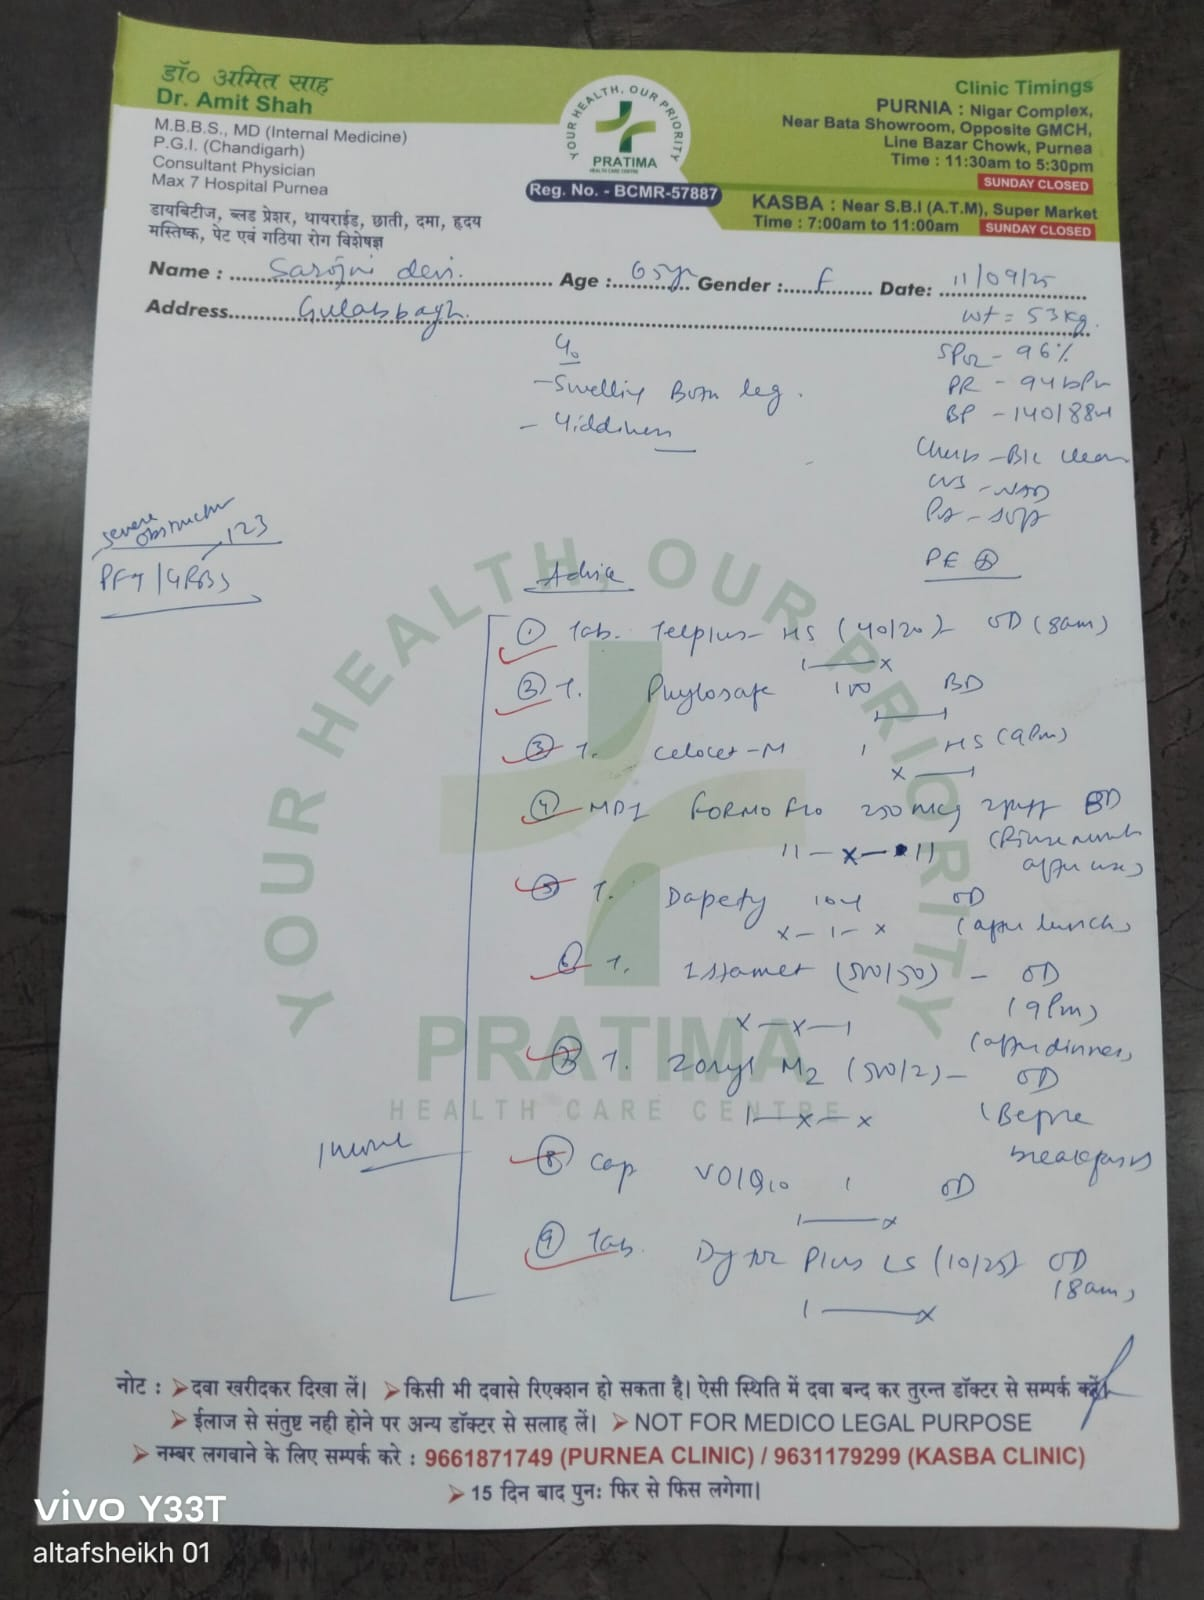 डॉ० अमित साह
Dr. Amit Shah
M.B.B.S., MD (Internal Medicine)
P.G.I. (Chandigarh)
Consultant Physician
Max 7 Hospital Purnea
डायबिटीज, ब्लड प्रेशर, थायराईड, छाती, दमा, हृदय
मस्तिष्क, पेट एवं गठिया रोग विशेषज्ञ
YOUR HEALTH, OUR PRIORITY
PRATIMA
HEALTH CARE CENTRE
Reg. No. - BCMR-57887
Clinic Timings
PURNIA : Nigar Complex,
Near Bata Showroom, Opposite GMCH,
Line Bazar Chowk, Purnea
Time : 11:30am to 5:30pm
SUNDAY CLOSED
KASBA : Near S.B.I (A.T.M), Super Market
Time : 7:00am to 11:00am SUNDAY CLOSED
Name : Sarojni devi. Age : 65yr Gender : F Date: 11/09/25
Address Gulabbagh.
Wt = 53kg.
SPO2 - 96%
PR - 94bpm
BP - 140/88
Chest - B/L clear
CVS - NAD
PA - soft
PE ⊕
C/o
- Swelling Both leg.
- Giddiness
severe obstruction
123
PFT / GRBS
Advice
① Tab. Telplus- (40/20) OD (8am)
1 — x
② T. Phylosafe 100 BD
③ T. Celocet-M 1 HS (9pm)
x — 1
④ MDI FORMOFLO 250 mcg 2puff BD
11 — x — 11 (Rinse mouth
after use)
⑤ T. 10 OD
x - 1 - x (after lunch)
⑥ T. Istamet (500/50) - OD
(9pm)
x - x - 1 (after dinner)
⑦ T. Zoryl M2 (500/2) - OD
1 - x - x (Before
breakfast)
⑧ Cap 1 OD
1 — x
⑨ Tab. Dytor Plus LS (10/25) OD
(8am)
1 — x
YOUR HEALTH, OUR PRIORITY
PRATIMA
HEALTH CARE CENTRE
नोट : ➤ दवा खरीदकर दिखा लें। ➤ किसी भी दवासे रिएक्शन हो सकता है। ऐसी स्थिति में दवा बन्द कर तुरन्त डॉक्टर से सम्पर्क करें।
➤ ईलाज से संतुष्ट नही होने पर अन्य डॉक्टर से सलाह लें। ➤ NOT FOR MEDICO LEGAL PURPOSE
➤ नम्बर लगवाने के लिए सम्पर्क करे : 9661871749 (PURNEA CLINIC) / 9631179299 (KASBA CLINIC)
➤ 15 दिन बाद पुनः फिर से फिस लगेगा।
vivo Y33T
altafsheikh 01